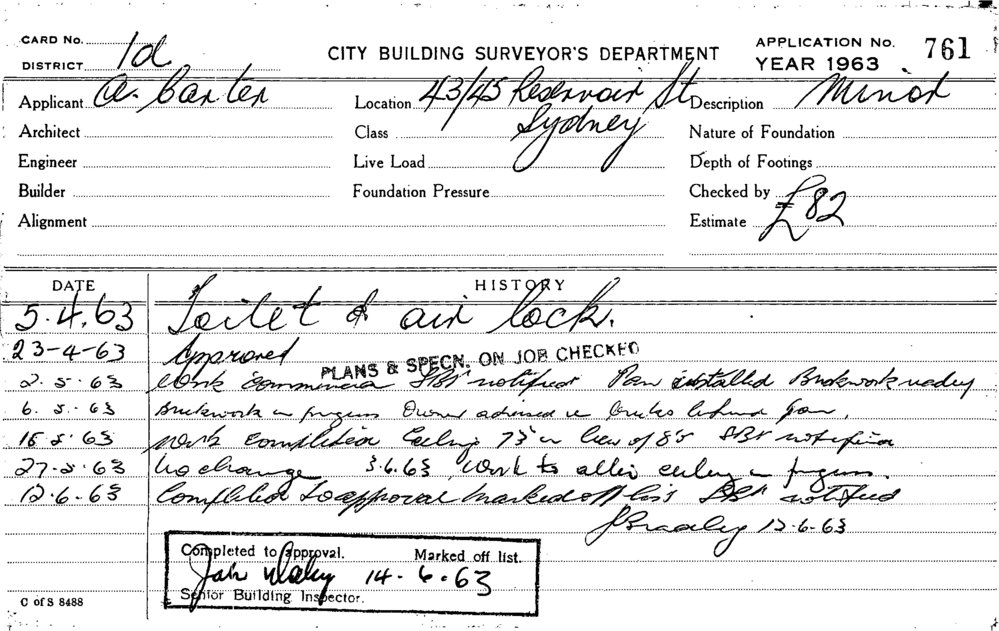 CARD No.
DISTRICT 1d
CITY BUILDING SURVEYOR'S DEPARTMENT
APPLICATION No. 761
YEAR 1963
Applicant A. Baxter
Location 43/45 Reservoir St
Sydney
Description Minor
Architect
Class
Nature of Foundation
Engineer
Live Load
Depth of Footings
Builder
Foundation Pressure
Checked by
Alignment
Estimate £82
DATE HISTORY
5.4.63 Toilet & air lock.
23-4-63 Approved
PLANS & SPECN. ON JOB CHECKED
2.5.63 Work notified Pan installed Brickwork ready
6.5.63 Brickwork in progress Owner advised re bricks behind
15.5.63 Work completion Ceiling 7'3" in lieu of 8'3 notified
27.5.63 No change 3.6.63 work to alter ceiling in progress
12-6-63 Completed to approval Marked off list notified
JBradley 12-6-63
Completed to approval. Marked off list.
14-6-63
Senior Building Inspector.
C of S 8488